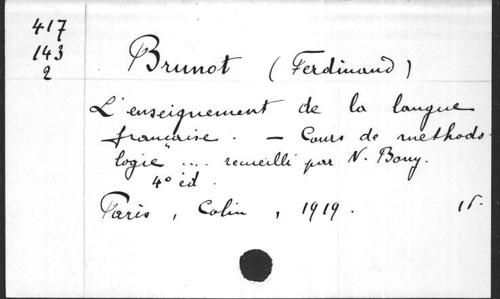 417
143
2
Brunot (Ferdinand)
L'enseignement de la langue
française. — Cours de methodo-
logie .... recueilli par N. Bony.
4º éd.
Paris, Colin, 1919.